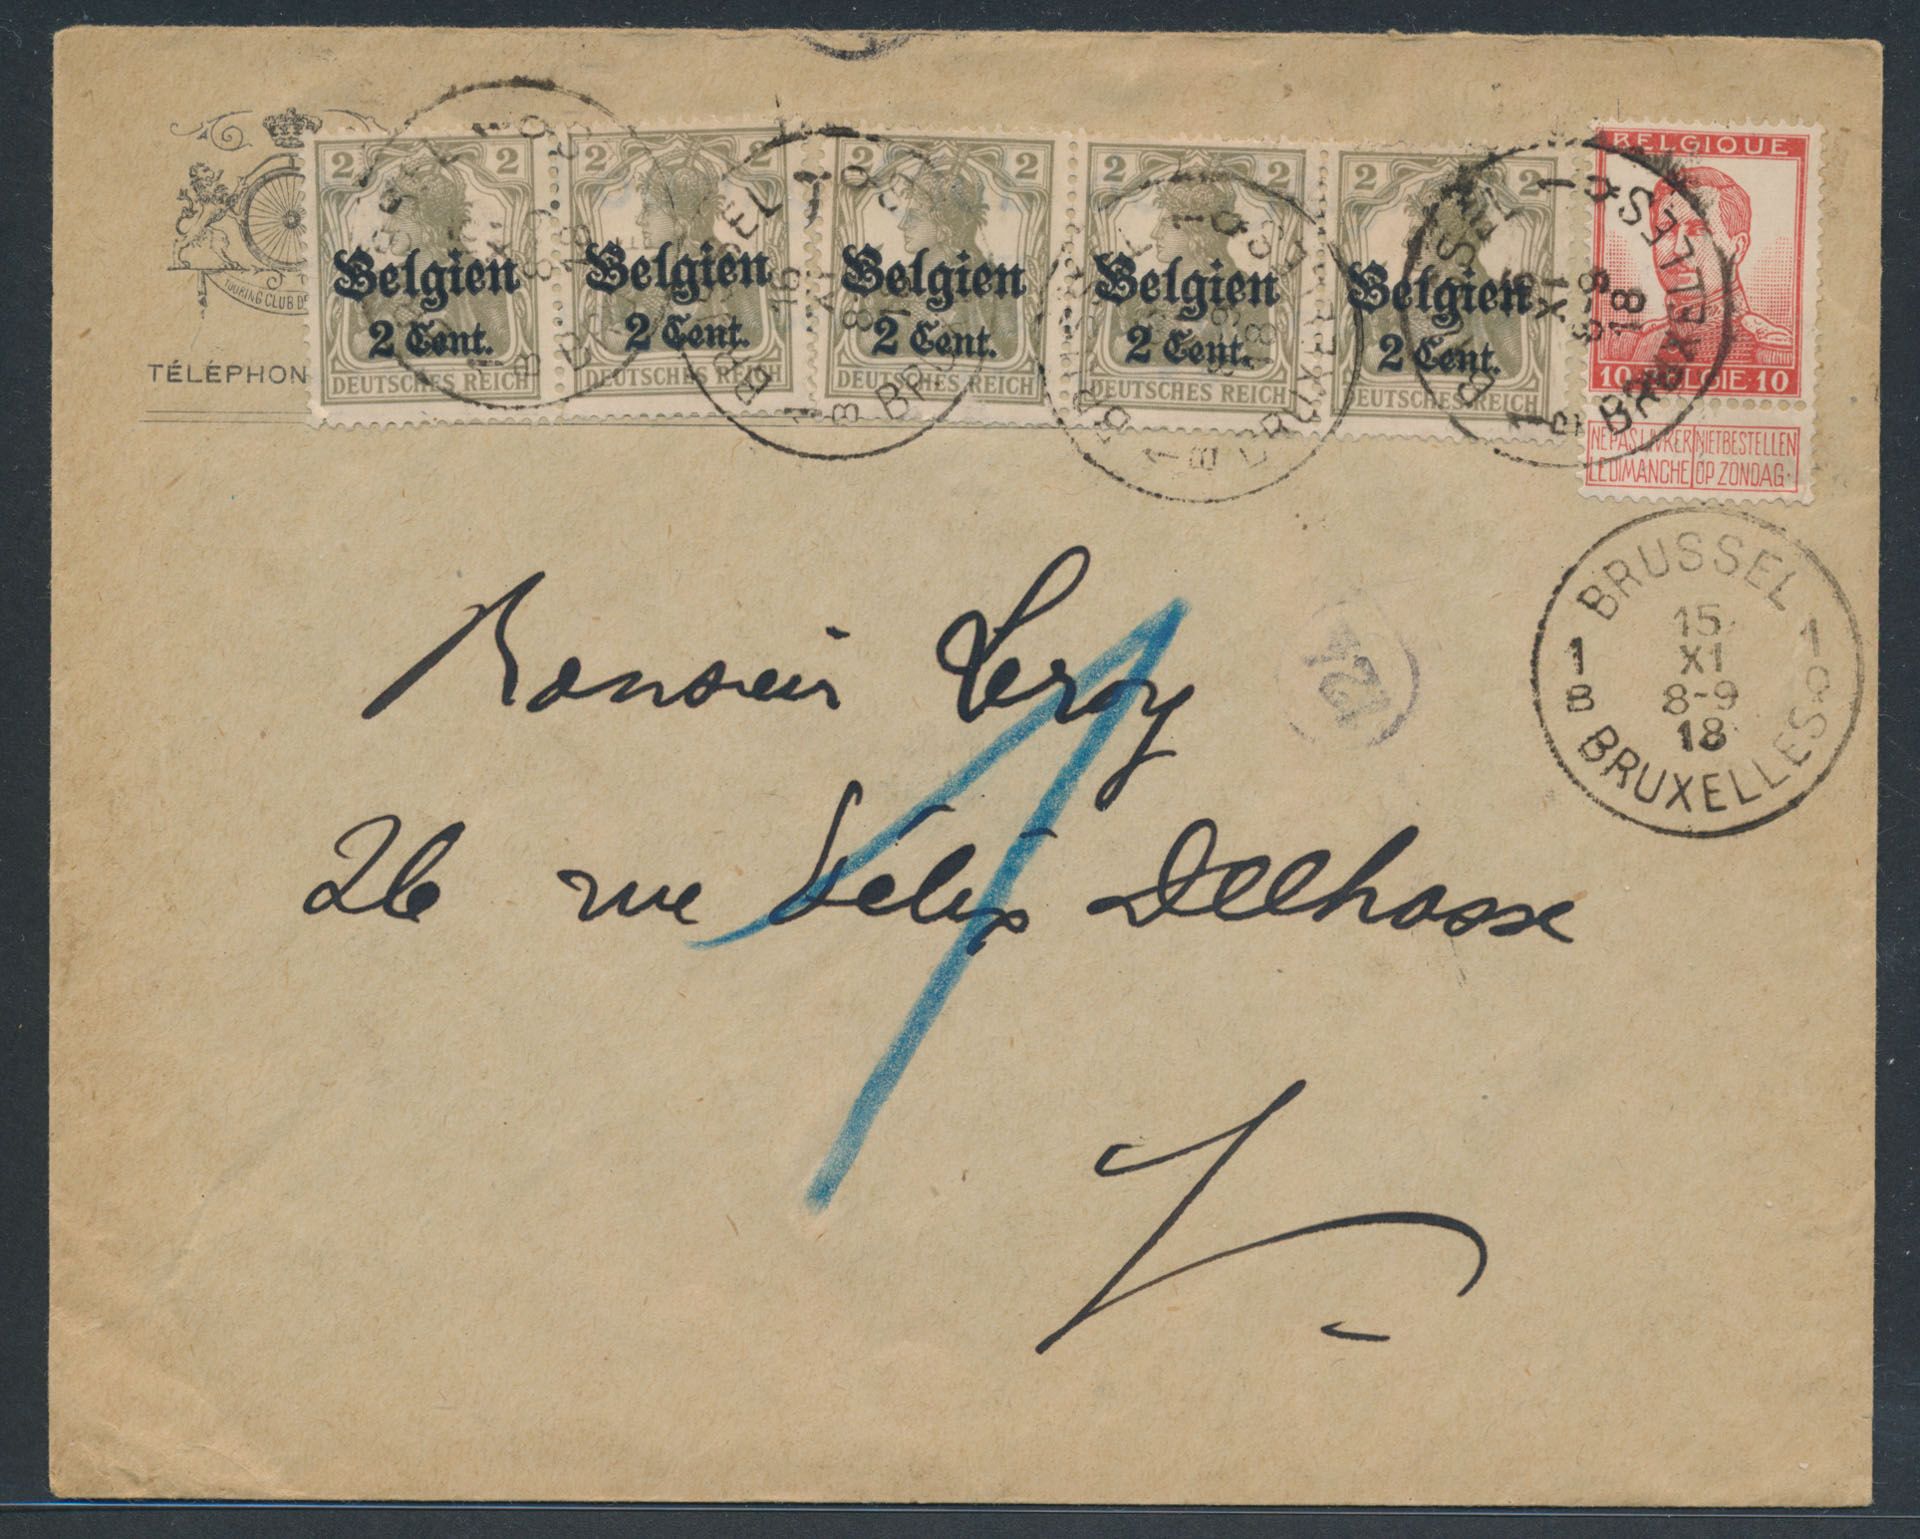 TOURING CLUB DE
TÉLÉPHON
2 2
Belgien
2 Cent.
DEUTSCHES REICH
2 2
Belgien
2 Cent.
DEUTSCHES REICH
2 2
Belgien
2 Cent.
DEUTSCHES REICH
2 2
Belgien
2 Cent.
DEUTSCHES REICH
2 2
Belgien
2 Cent.
DEUTSCHES REICH
BELGIQUE
10 BELGIE 10
NE PAS LIVRER NIET BESTELLEN
LE DIMANCHE OP ZONDAG.
BRUSSEL 1
15
XI
8-9
18
1B BRUXELLES 1
24
Monsieur Leroy
26 rue Félix Delhasse
1